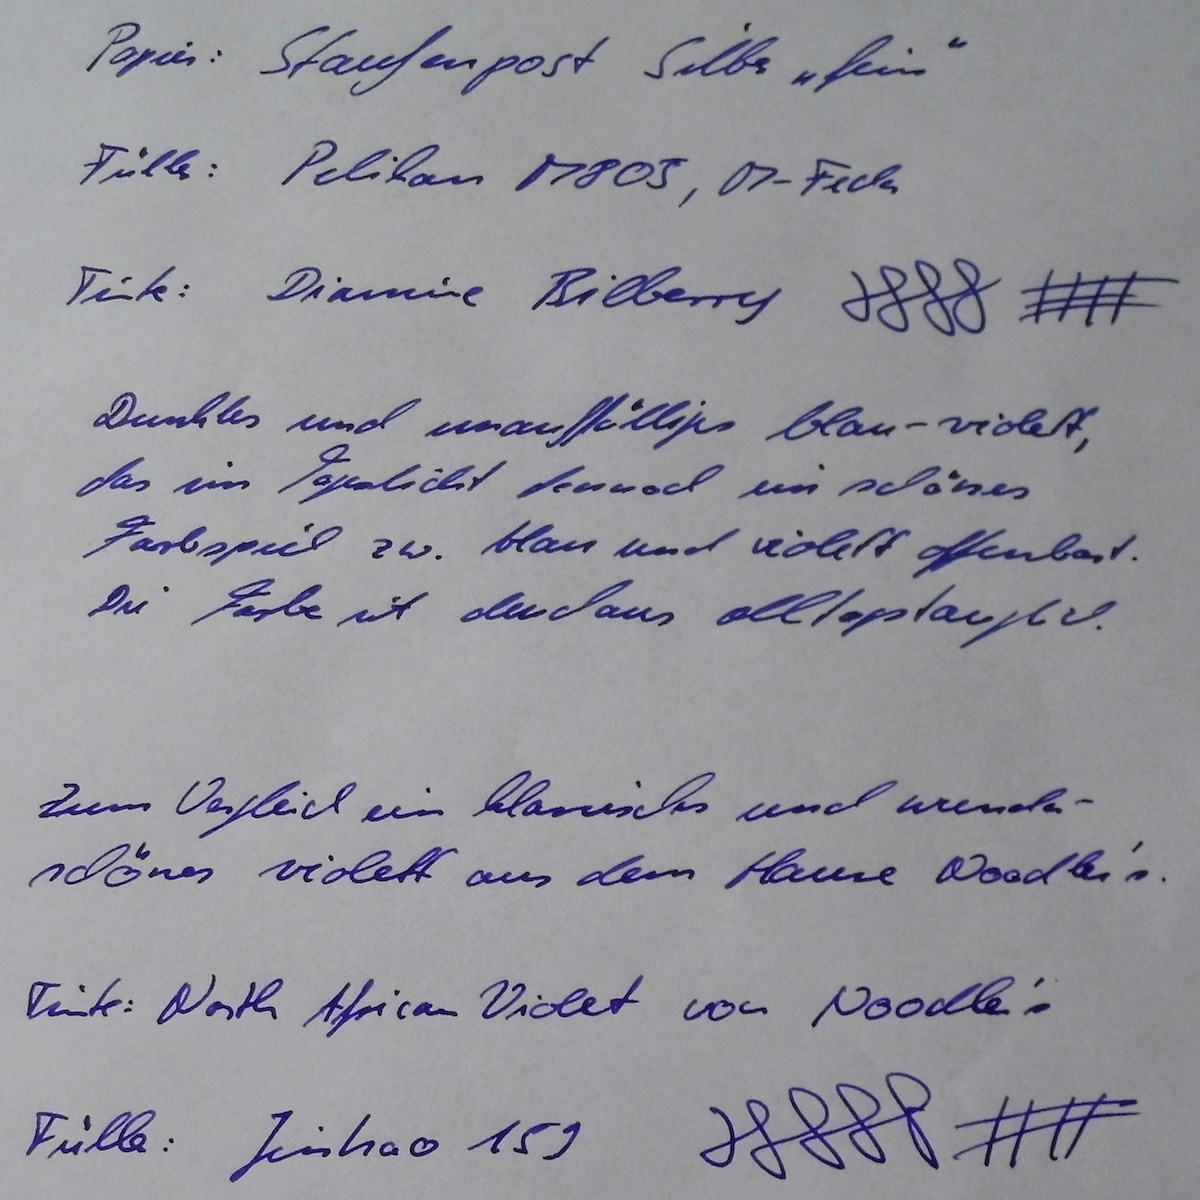 Papier: Staufenpost Silber „fein“
Füller: Pelikan M805, M-Feder
Tinte: Diamine Bilberry
Dunkles und unauffälliges blau-violett,
das im Tageslicht dennoch ein schönes
Farbspiel zw. blau und violett offenbart.
Die Farbe ist durchaus alltagstauglich.
Zum Vergleich ein klassisches und wunder-
schönes violett aus dem Hause Noodler's.
Tinte: North African Violet von Noodler's
Füller: Jinhao 159